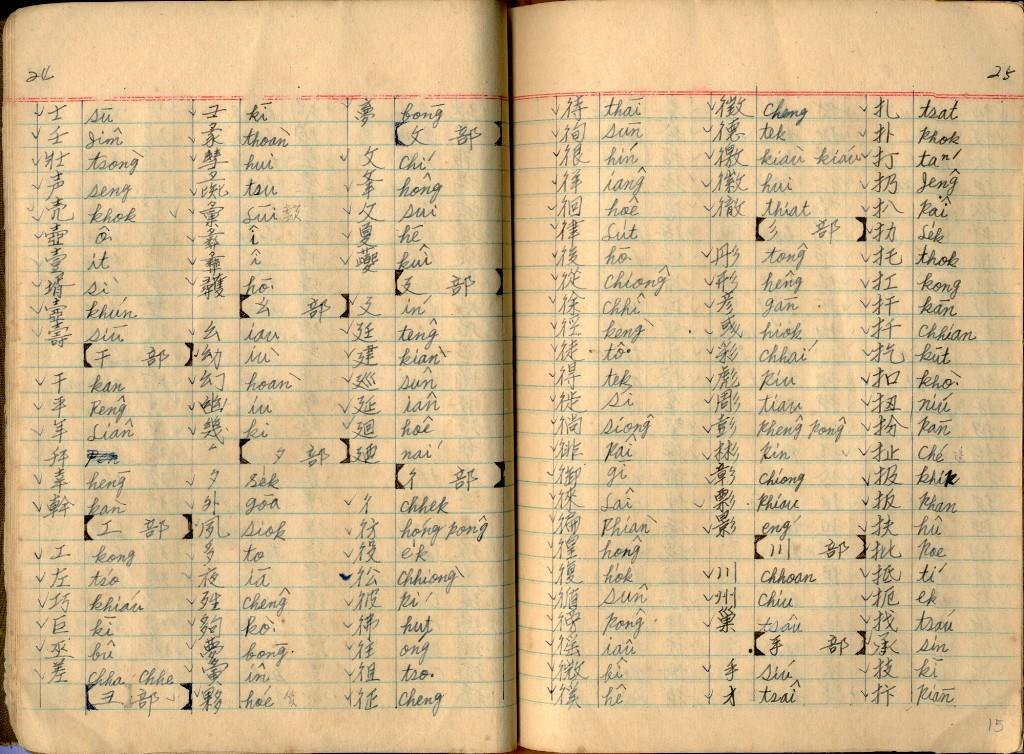 24
士 sū
壬 Jîm
壯 tsòng
声 seng
壳 khok
壺 ô·
壹 it
壻 sì
壼 khún
壽 siū
干 部
干 kan
平 Pêng
年 Liân
幸 hēng
幹 kàn
工 部
工 kong
左 tsó
巧 khiáu
巨 kī
巫 bû
差 chha chhe
彐 部
kì
彖 thoàn
hui
tsu
彙 Lūi
彝 î
î
hō·
幺 部
幺 iau
幼 iù
幻 hoàn
幽 iu
幾 ki
夕 部
夕 sék
外 gōa
夙 siok
多 to
夜 iā
chêng
夠 kò·
夢 bōng
夤 în
夥 hóe
夢 bōng
夂 部
夂 chí
夆 hông
夊 sui
夏 hē
夔 kuî
廴 部
廴 ín
廷 têng
建 kiàn
巡 sûn
延 iân
廻 hôe
廼 nái
彳 部
彳 chhek
彷 hóng pông
役 ék
彸 chhiong
彼 Pí
彿 hut
往 óng
徂 tso·
征 cheng
25
待 thāi
徇 sūn
很 hín
徉 iâng
徊 hôe
律 Lut
後 hō·
從 chiông
徐 chhî
徑 kèng
徒 tô·
得 tek
徙 sí
徜 siông
徘 Pâi
御 gī
徠 Lâi
徧 Phiàn
徨 hông
復 hok
循 sûn
徬 Pông
徭 iâu
微 bî
徯 hê
徵 cheng
德 tek
徼 kiàu kiáu
徽 hui
徹 thiat
彡 部
彤 tông
形 hêng
彥 gān
彧 hiok
彩 chhái
彪 Piu
彫 tiau
彭 Phêng Pông
彬 Pin
彰 chiong
Phiau
影 éng
川 部
川 chhoan
州 chiu
巢 tsâu
手 部
手 siú
才 tsâi
扎 tsat
扑 Phok
打 táⁿ
扔 Jêng
扒 Pâi
扐 Lék
托 thok
扛 kong
扞 kān
扦 chhian
扢 kut
扣 khò·
扭 niú
扮 Pān
扯 Ché
扱 khik
扳 Phan
扶 hû
批 Poe
抵 tí
扼 ek
找 tsáu
承 sîn
技 kī
抃 Piān
15